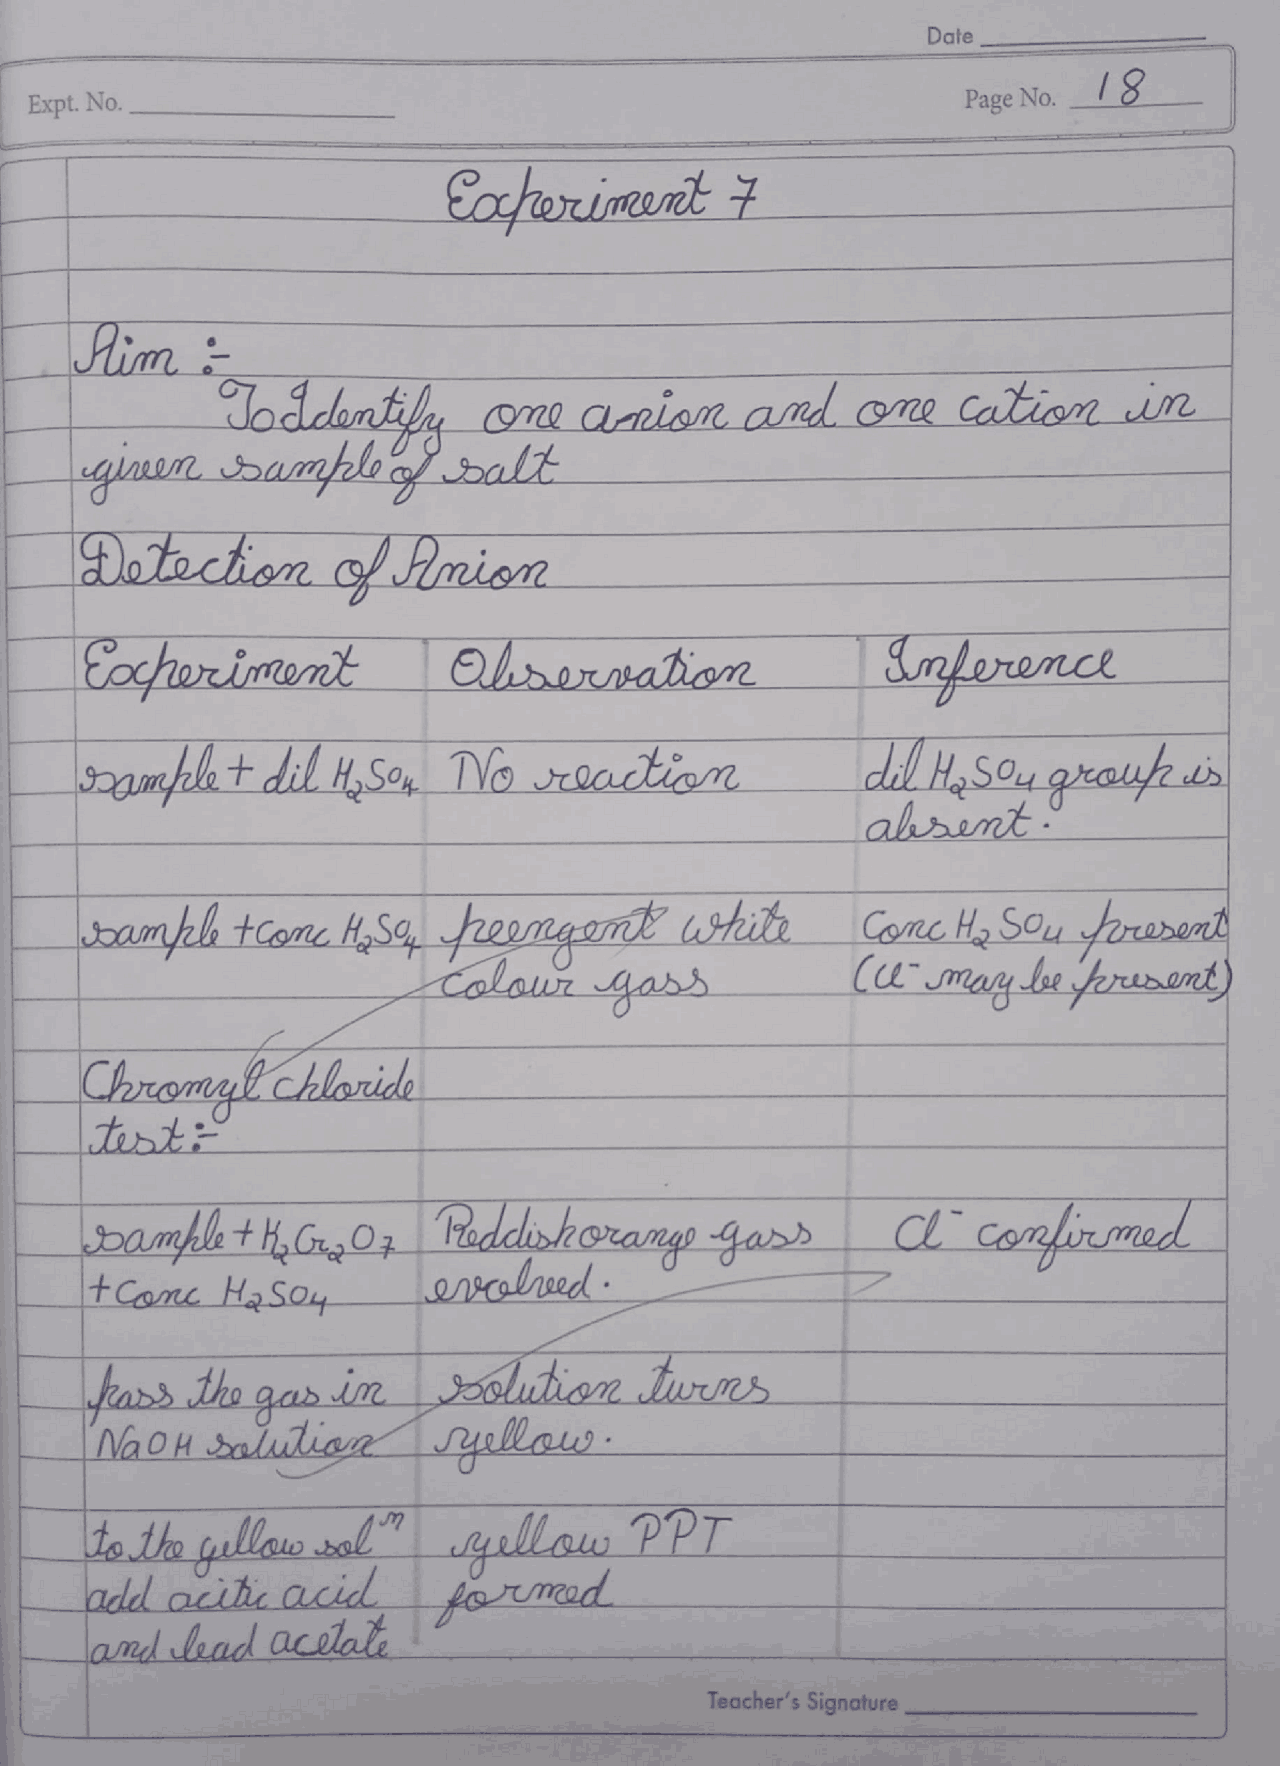 Date
Expt. No.
Page No. 18
Experiment 7
Aim :-
To Identify one anion and one cation in
given sample of salt
Detection of Anion
Experiment Observation Inference
sample + dil H₂SO₄ No reaction dil H₂SO₄ group is
absent.
sample + Conc H₂SO₄ peengent white Conc H₂SO₄ present
colour gass (Cl⁻ may be present)
Chromyl chloride
test :-
sample + K₂Cr₂O7 Reddish orange gass Cl⁻ confirmed
+ Conc H₂SO₄ evolved.
pass the gas in solution turns
NaOH solution yellow.
to the yellow solⁿ yellow PPT
add acitic acid formed
and lead acetate
Teacher's Signature